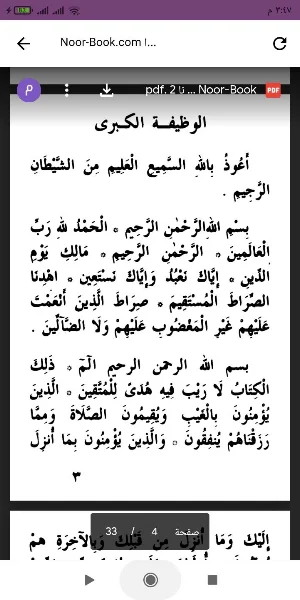 ٣:٤٧ م
Noor-Book.com ا...
P
Noor-Book ... تا 2 .pdf
PDF
الوظيفــة الكبـرى
أَعُوذُ بِاللهِ السَّمِيعِ الْعَلِيمِ مِنَ الشَّيْطَانِ
الرَّجِيمِ .
بِسْمِ اللهِ الرَّحْمٰنِ الرَّحِيمِ * الْحَمْدُ للهِ رَبِّ
الْعَالَمِينَ * الرَّحْمٰنِ الرَّحِيمِ * مَالِكِ يَوْمِ
الدِّينِ * إِيَّاكَ نَعْبُدُ وَإِيَّاكَ نَسْتَعِين * اهْدِنَا
الصِّرَاطَ الْمُسْتَقِيمَ * صِرَاطَ الَّذِينَ أَنْعَمْتَ
عَلَيْهِمْ غَيْرِ الْمَغْضُوبِ عَلَيْهِمْ وَلَا الضَّآلِّينَ .
بسم الله الرحمن الرحيم الٓمٓ * ذَلِكَ
الْكِتَابُ لَا رَيْبَ فِيهِ هُدًى لِلْمُتَّقِينَ * الَّذِينَ
يُؤْمِنُونَ بِالْغَيْبِ وَيُقِيمُونَ الصَّلَاةَ وَمِمَّا
رَزَقْنَاهُمْ يُنفِقُونَ * وَالَّذِينَ يُؤْمِنُونَ بِمَا أُنزِلَ
٣
إِلَيْكَ وَمَا أُنزِلَ مِن قَبْلِكَ وَبِالْآخِرَةِ هُمْ
صفحة 4 / 33